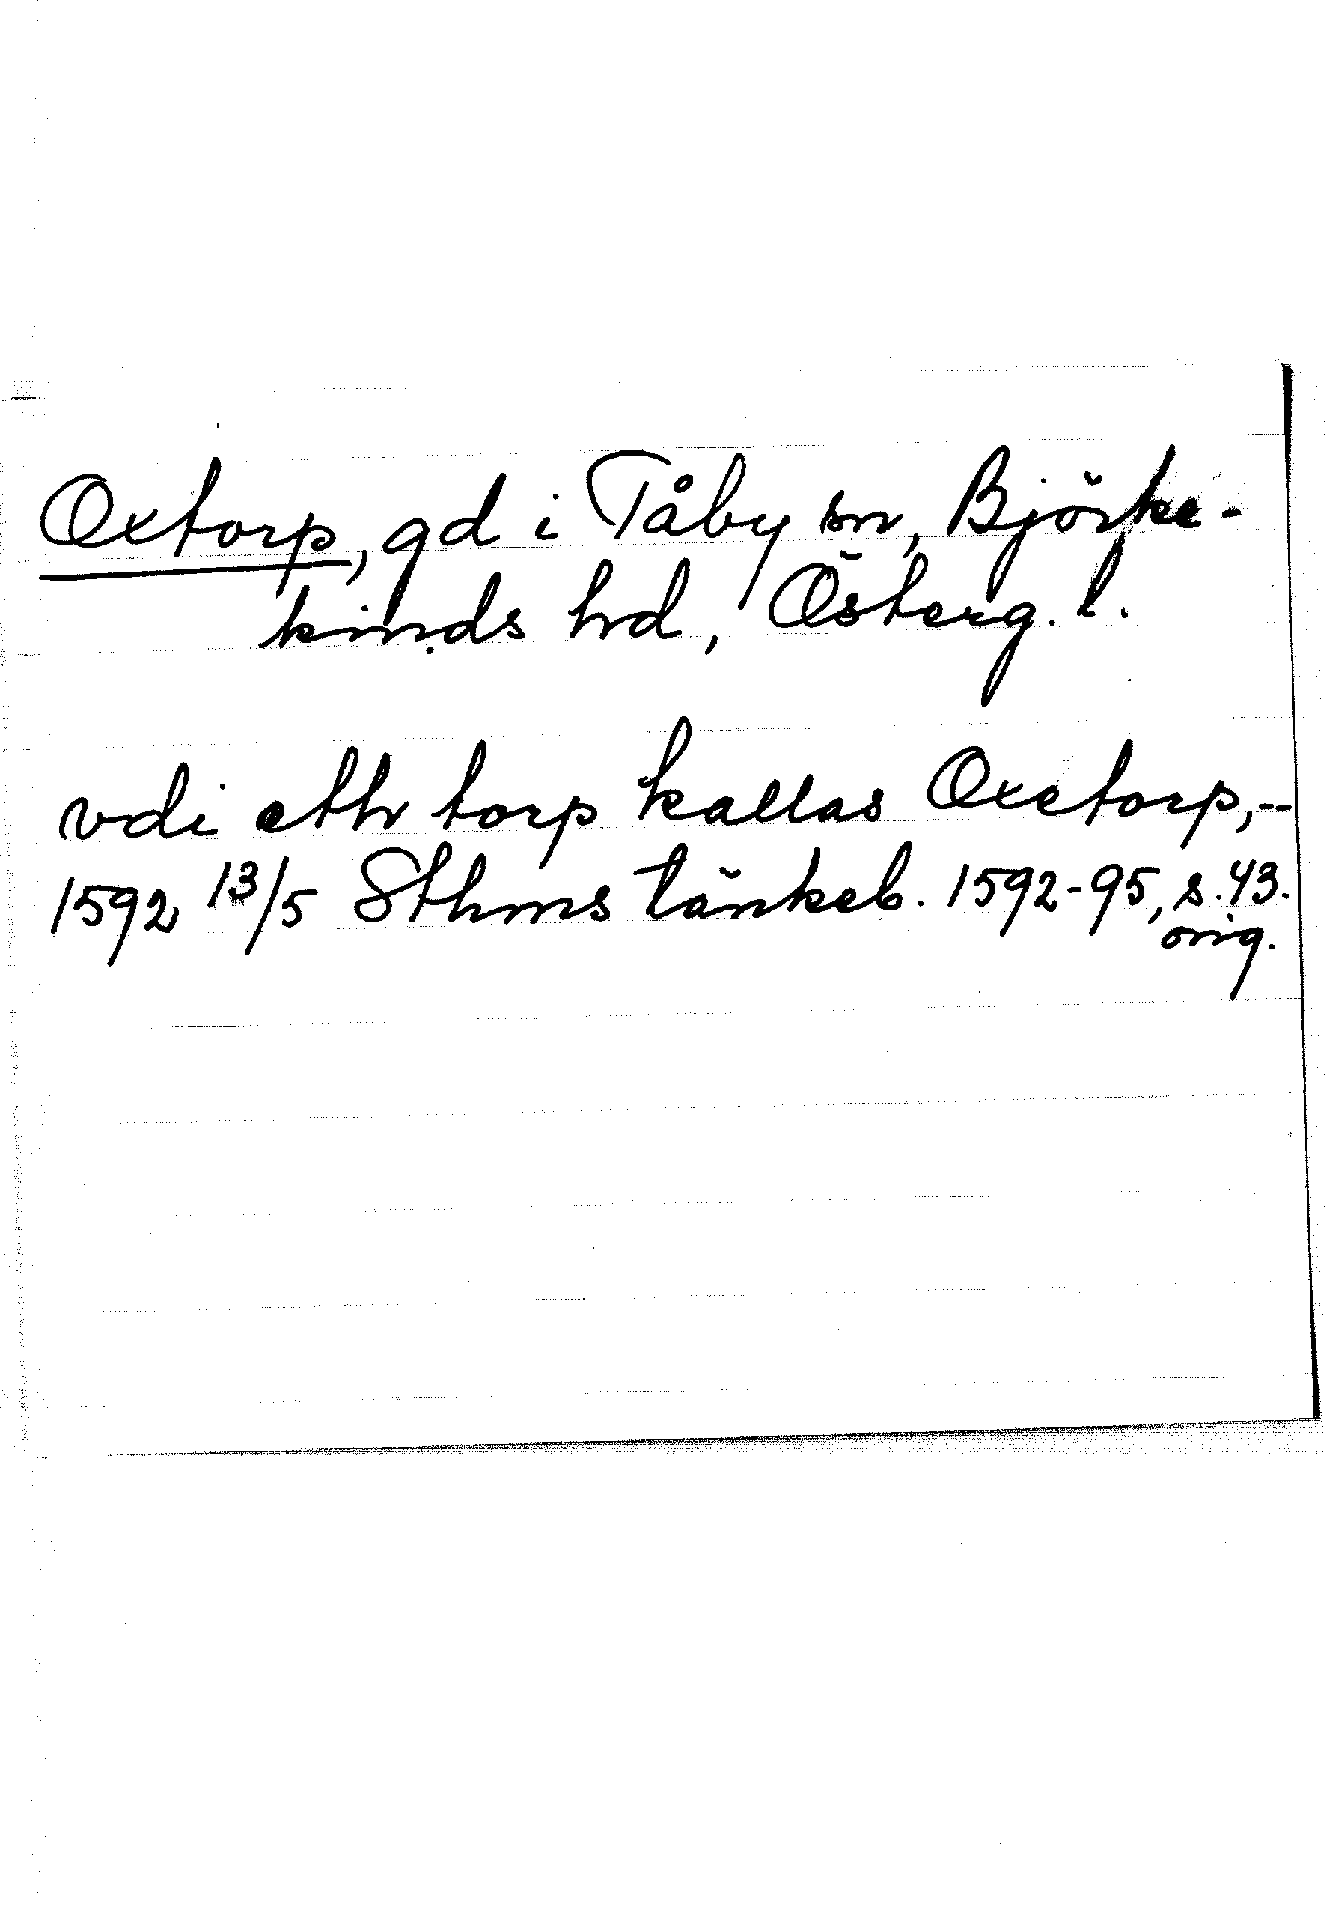 Oxtorp, gd i Tåby sn, Björke-
kinds hd, Österg. l.
vdi etth torp kallas Oxetorp, --
1592 13/5 Sthms tänkeb. 1592-95, s. 43.
orig.